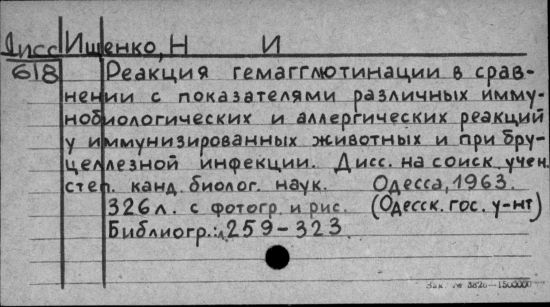 Дисс Ищенко, Н И
618 Реакция гемагглютинации в срав-
нении с показателями различных имму-
нобиологических и аллергических реакций
у иммунизированных животных и при бру-
целлезной инфекции. Дисс. на соиск учен.
степ. канд. биолог. наук. Одесса, 1963.
326 л. с фотогр. и рис. (Одесск. гос. у-нт)
Библиогр.: л. 259-323
Зак. № 3820-1500000